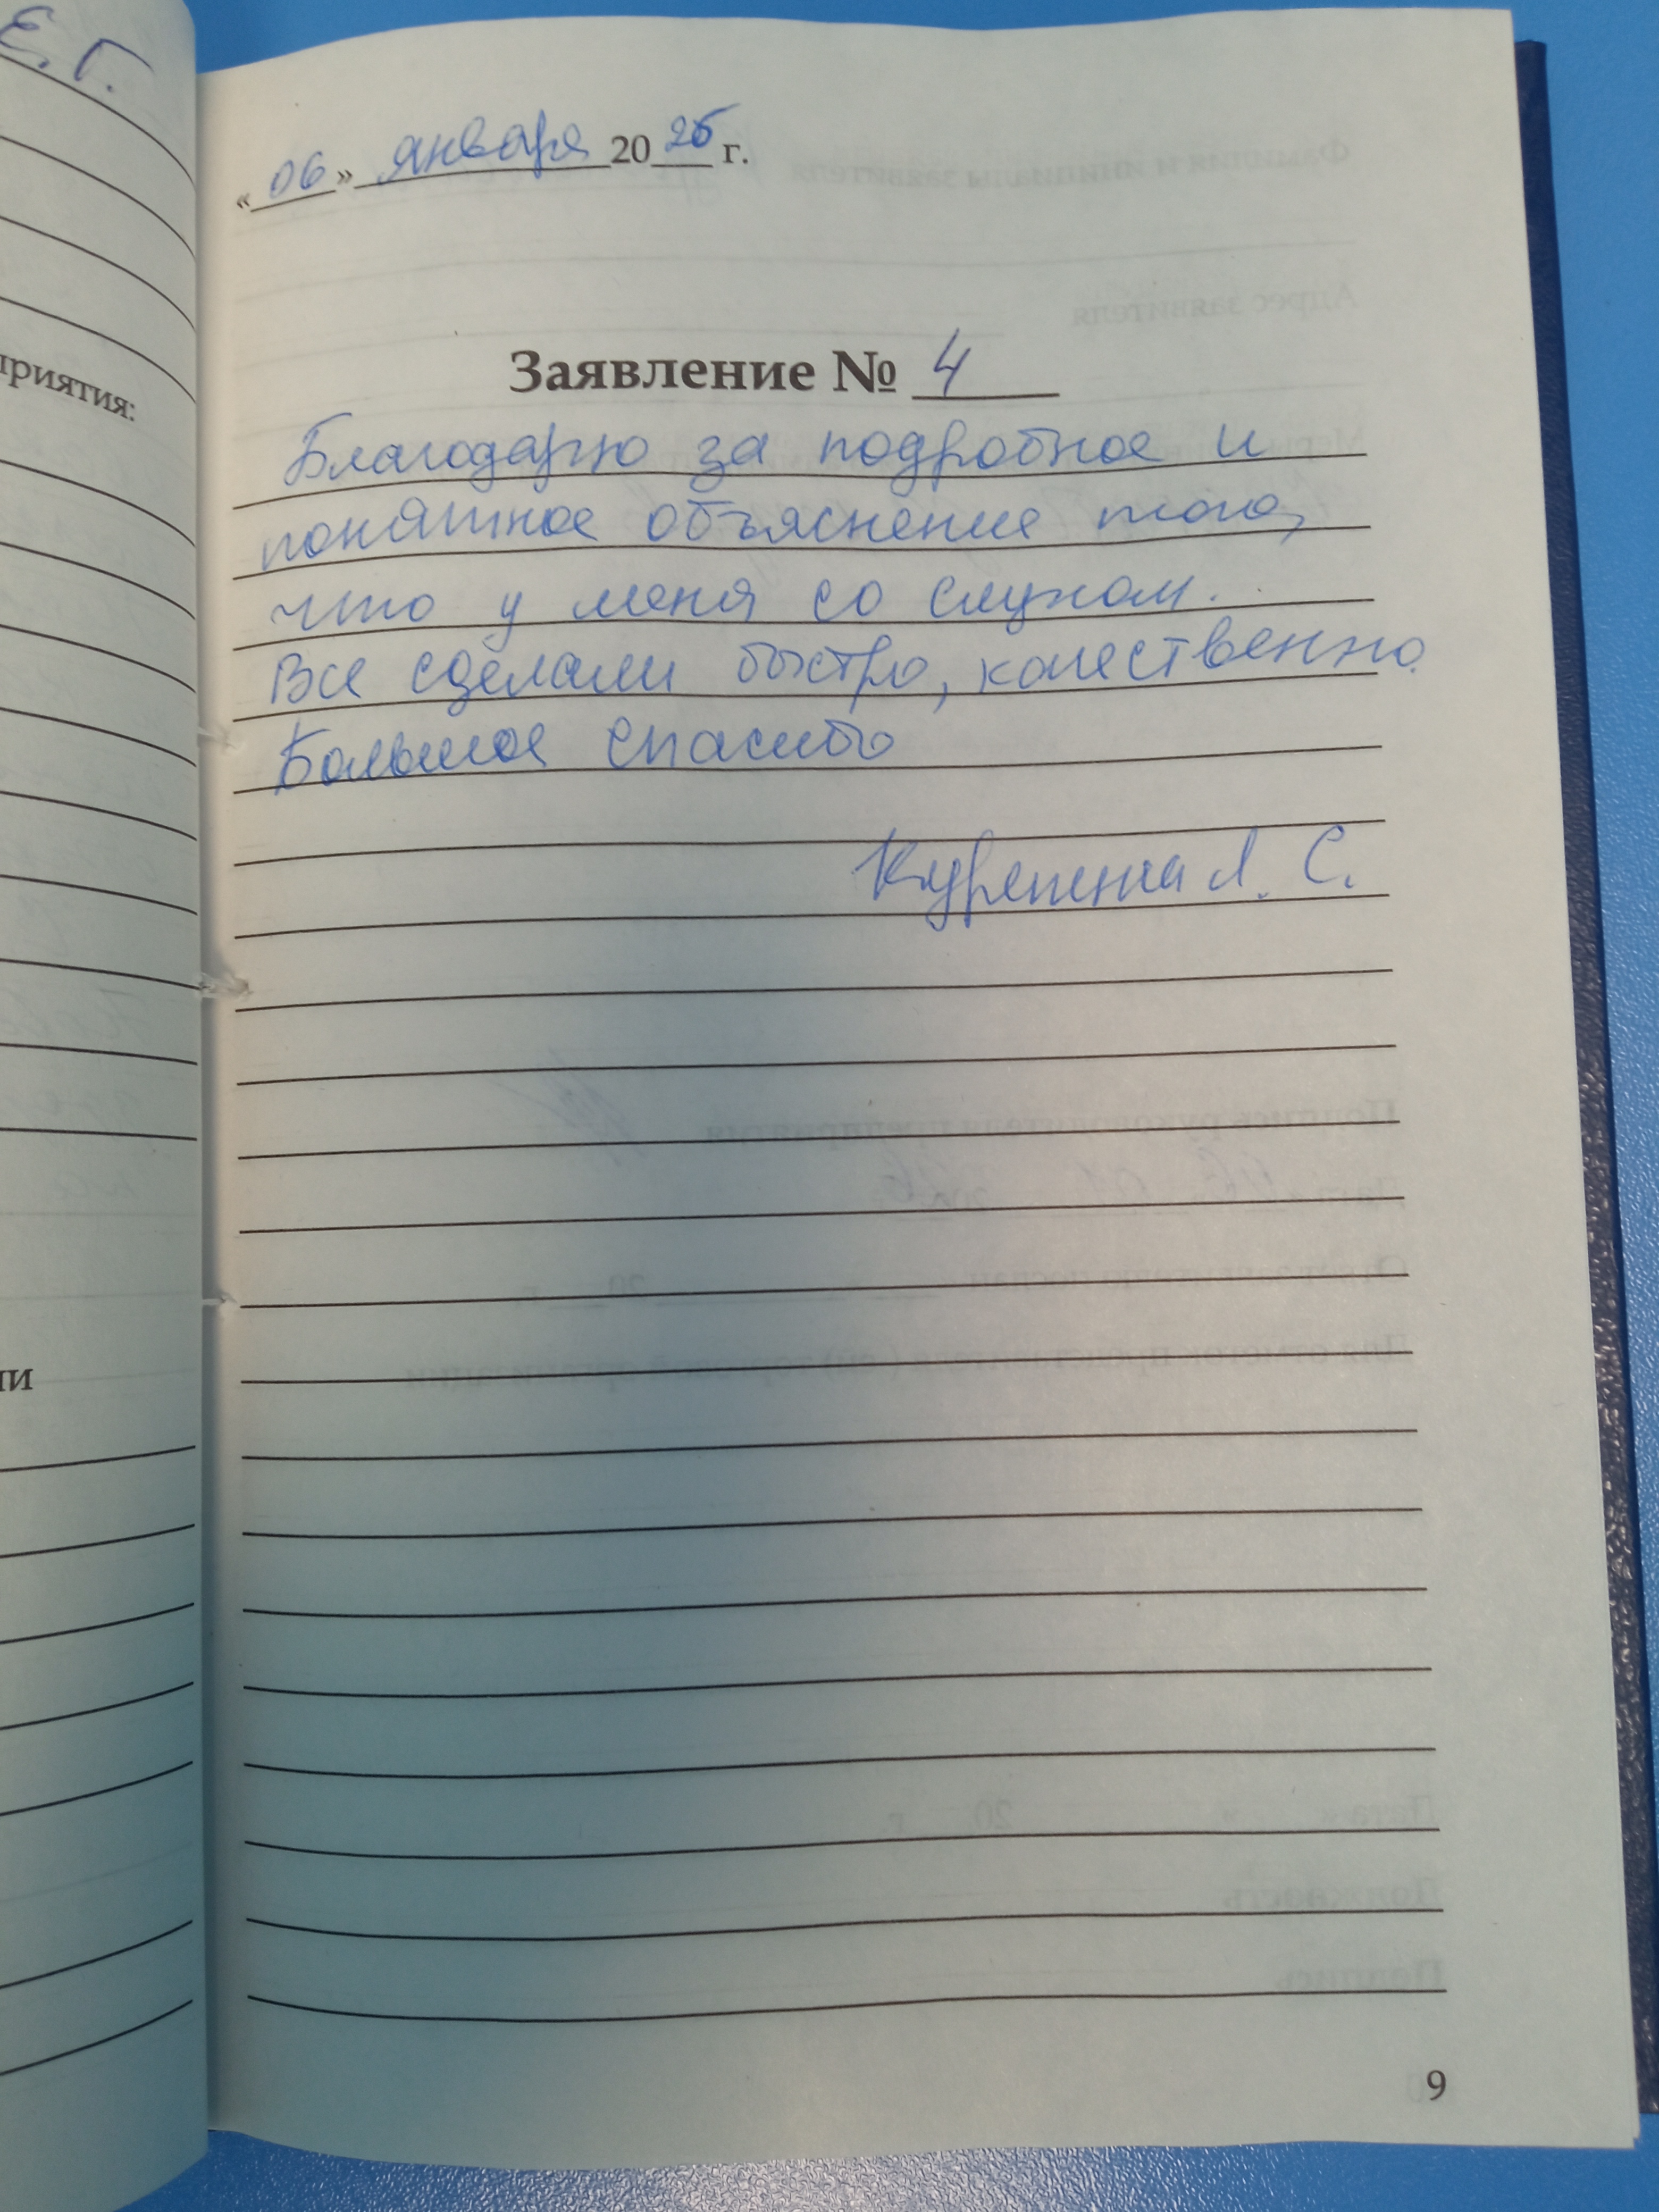 Е. Г.
приятия:
ли
«06» января 2026 г.
Заявление № 4
Благодарю за подробное и
понятное объяснение того,
что у меня со слухом.
Все сделали быстро, качественно.
Большое спасибо
Л. С.
9